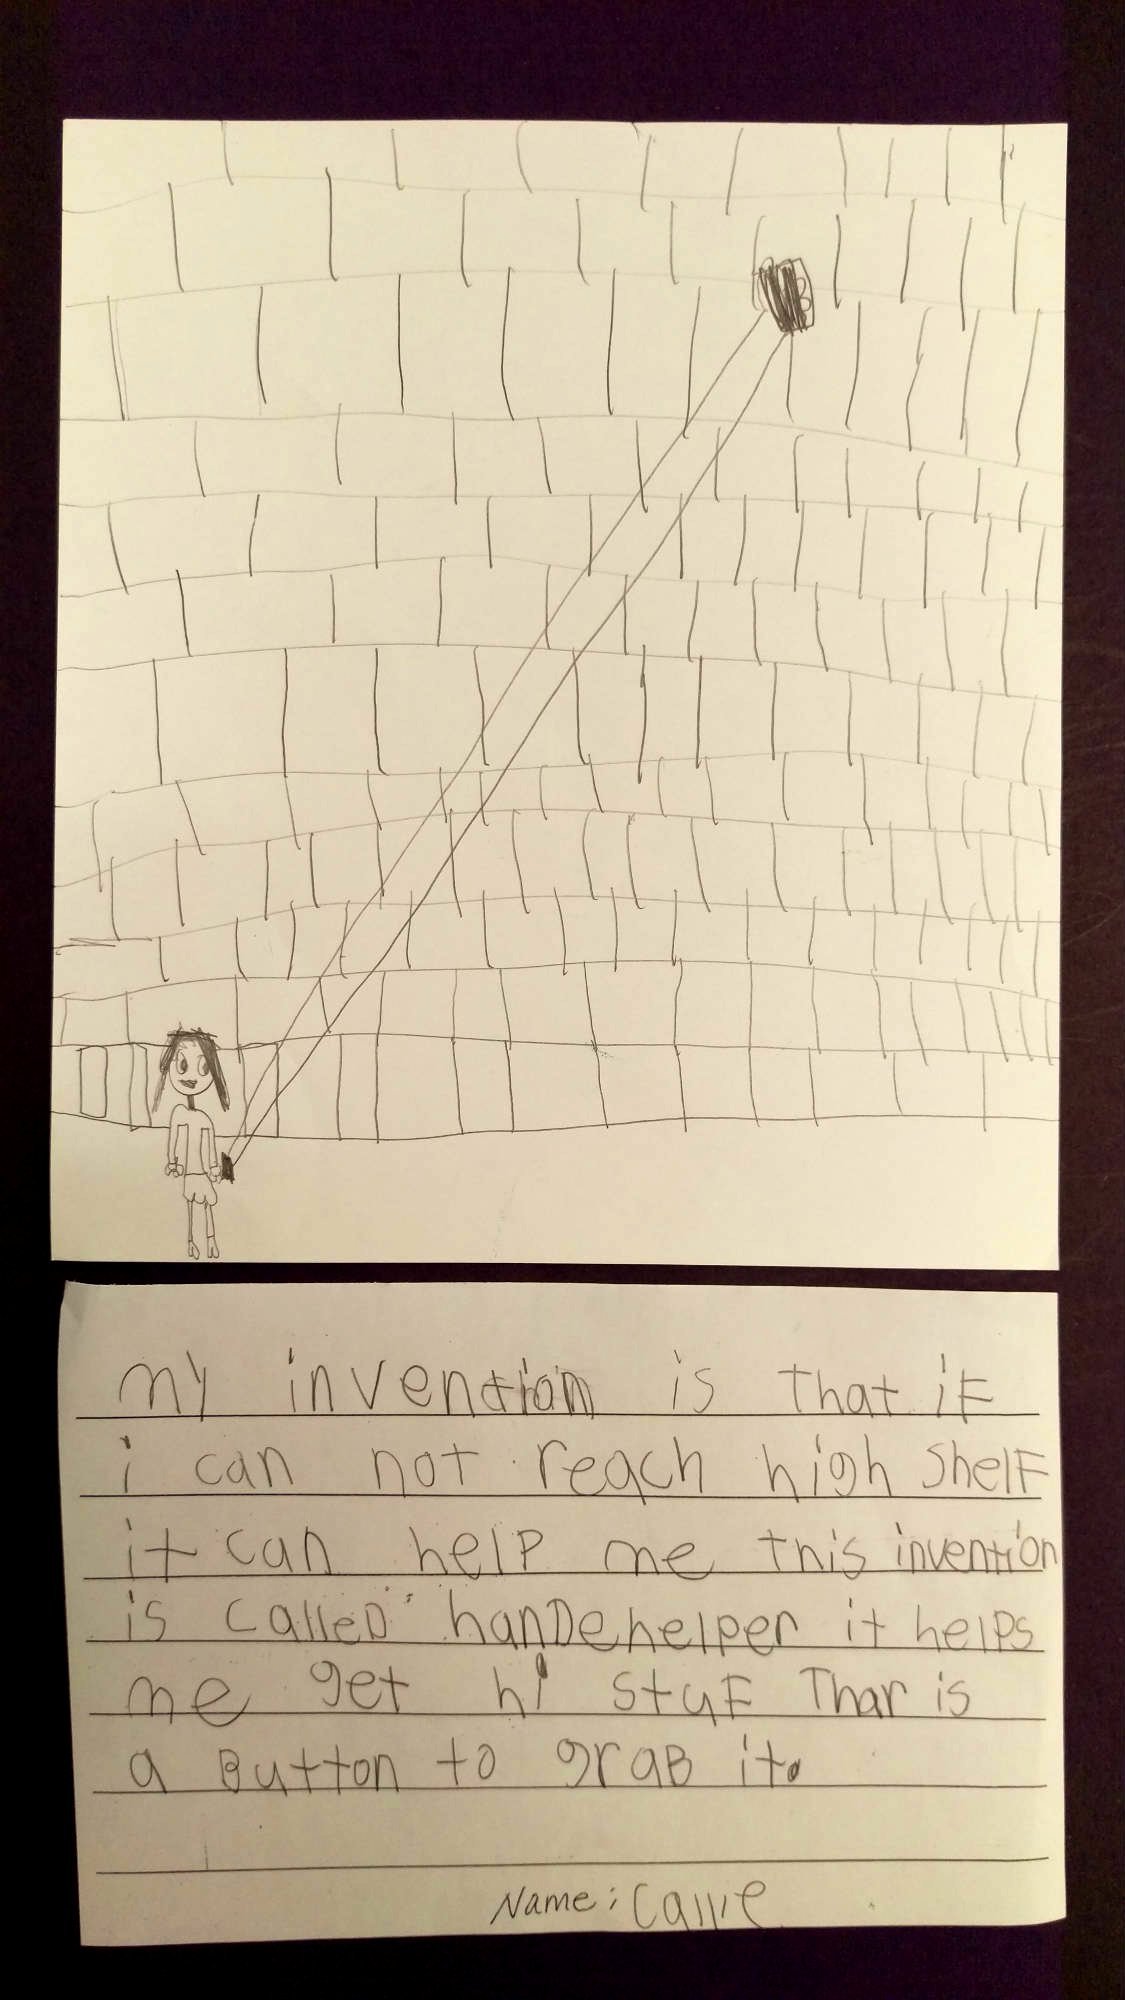 my invention is that iF
i can not reach high shelF
it can help me this invention
is calleD hanDehelper it helps
me get hi stuF Thar is
a Button to graB it.
Name: Callie